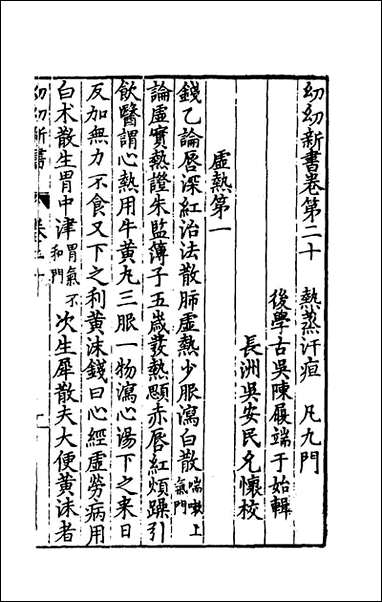 幼幼新書卷第二十　熱蒸汗疸　凡九門
後學古吳陳履端于始輯
長洲吳安民允懷校
虛熱第一
錢乙論唇深紅治法散肺虛熱少服瀉白散喘嗽上氣門
論虛實熱證朱監簿子五歲發熱顋赤唇紅煩躁引
飲醫謂心熱用牛黃丸三服一物瀉心湯下之來日
反加無力不食又下之利黃沫錢曰心經虛勞病用
白朮散生胃中津胃氣不和門次生犀散夫大便黃沫者
幼幼新書　卷二十